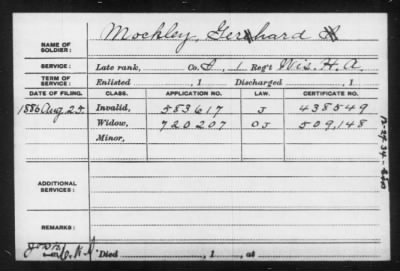 NAME OF SOLDIER: Mockley, Gerhard
SERVICE: Late rank, Co. I, 1 Reg't Wis. H. A.
TERM OF SERVICE: Enlisted , 1 Discharged , 1
DATE OF FILING. CLASS. APPLICATION NO. LAW. CERTIFICATE NO.
1886 Aug. 25. Invalid, 583617 J 438549
Widow, 720207 OJ 509,148
Minor,
ADDITIONAL SERVICES:
REMARKS:
Died , 1 , at